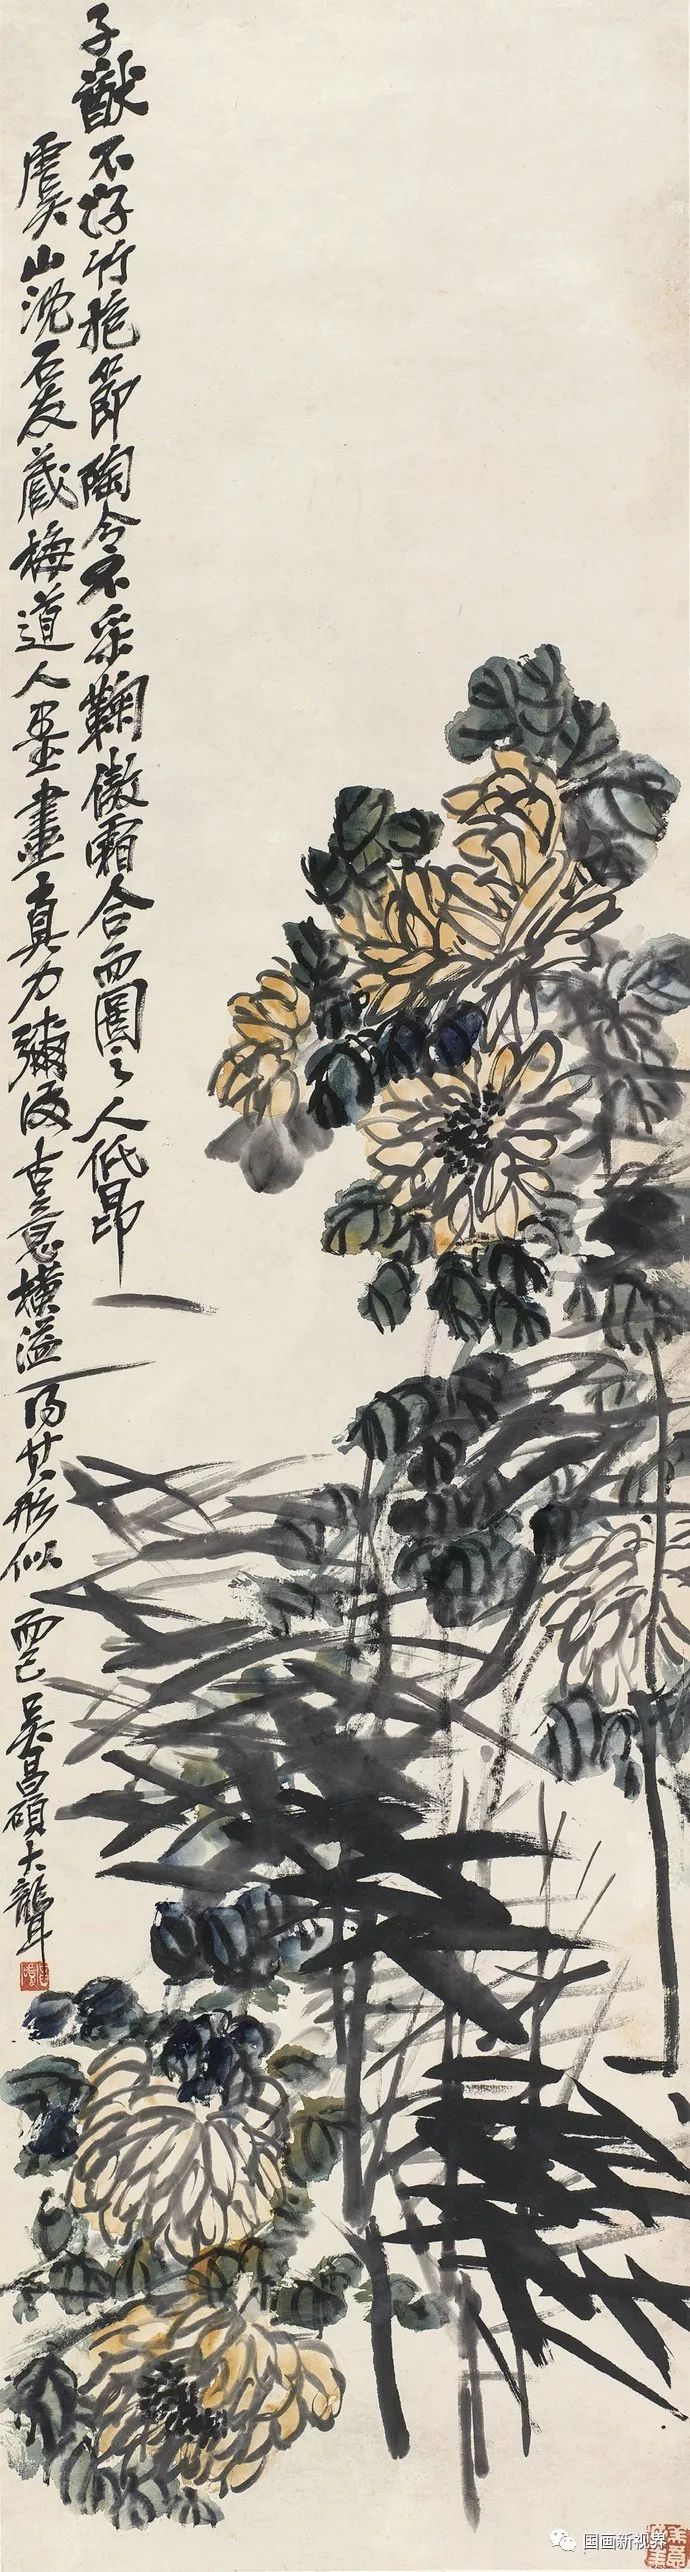 子猷不好竹抱節陶令不采鞠傲霜合而圖之人低昂
虞山沈石友藏梅道人墨畫真力彌滿古意橫溢一得其形似而已吳昌碩大聾
国画新视界